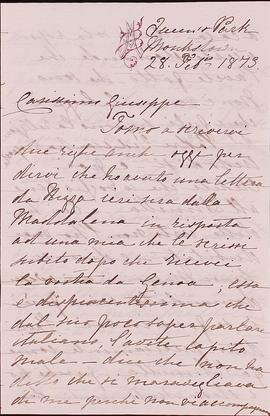 Queen's Park
Monkstown
28. Feb. 1873.
Carissimo Giuseppe
Torno a scrivervi
due righe anche oggi per
dirvi che ho avuto una lettera
da Nizza ieri sera dalla
Maddalena in risposta
ad una mia che le scrissi
subito dopo che ricevei
la vostra da Genoa; essa
è dispiacentissima che
dal suo poco saper parlare
italiano, l'avete capito
male - dice che non ha
detto che si maravigliava
di me perchè non vi accompag